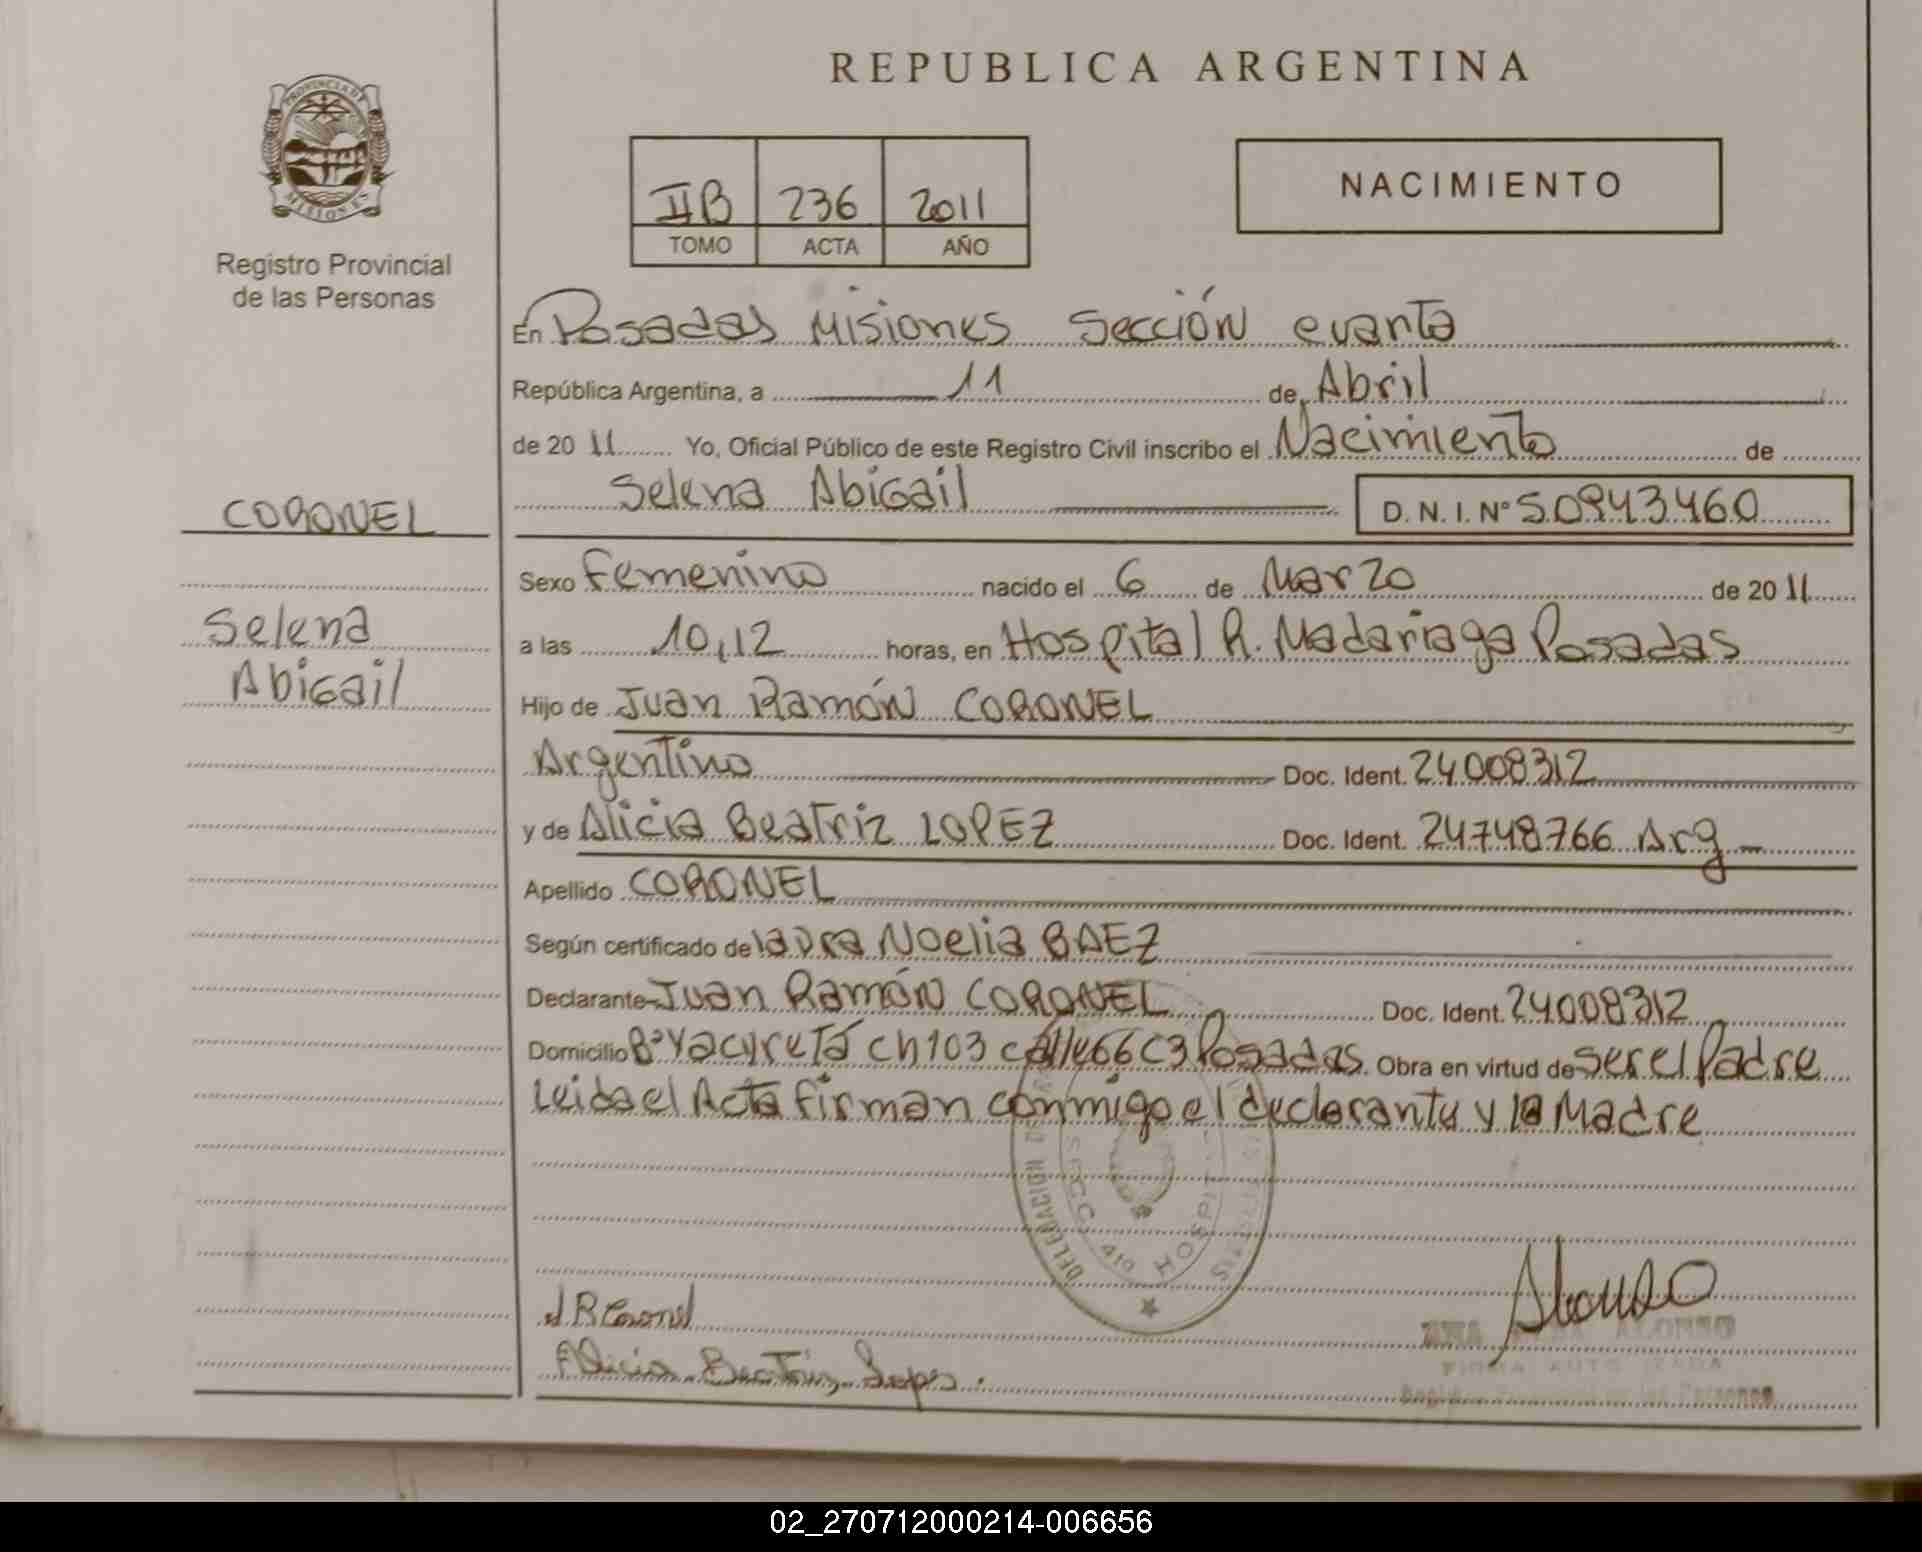 REPUBLICA ARGENTINA
PROVINCIA DE
MISIONES
Registro Provincial
de las Personas
IIB 236 2011
TOMO ACTA AÑO
NACIMIENTO
En Posadas Misiones Sección cuarta
República Argentina, a 11 de Abril
de 20 11 Yo, Oficial Público de este Registro Civil inscribo el Nacimiento de
Selena Abigail D. N. I. Nº 50943460
CORONEL
Selena
Abigail
Sexo Femenino nacido el 6 de Marzo de 20 11
a las 10,12 horas, en Hospital R. Madariaga Posadas
Hijo de Juan Ramón CORONEL
Argentino Doc. Ident. 24008312
y de Alicia Beatriz LOPEZ Doc. Ident. 24748766 Arg
Apellido CORONEL
Según certificado de laura Noelia BAEZ
Declarante Juan Ramón CORONEL Doc. Ident. 24008312
Domicilio Bº Yacyretá ch 103 calle 66 C3 Posadas Obra en virtud de ser el Padre
Leida el Acta Firman conmigo el declarante y la Madre
DELEGACION
SECC. 4ta HOSPI
J R Coronel
Alicia Beatriz Lopes.
Alonso
ANA ALONSO
FIRMA AUTORIZADA
de las Personas
02_270712000214-006656